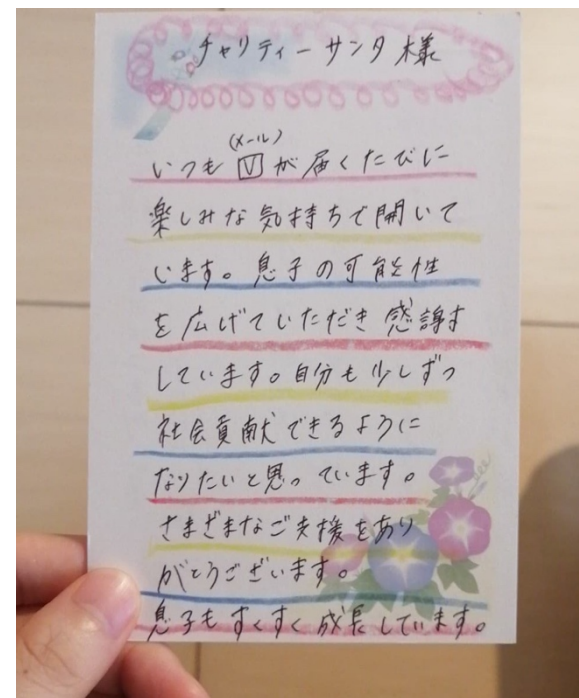 チャリティーサンタ様
(メール)
いつも が届くたびに
楽しみな気持ちで開いて
います。息子の可能性
を広げていただき感謝す
しています。自分も少しずつ
社会貢献できるように
なりたいと思っています。
さまざまなご支援をあり
がとうございます。
息子もすくすく成長しています。